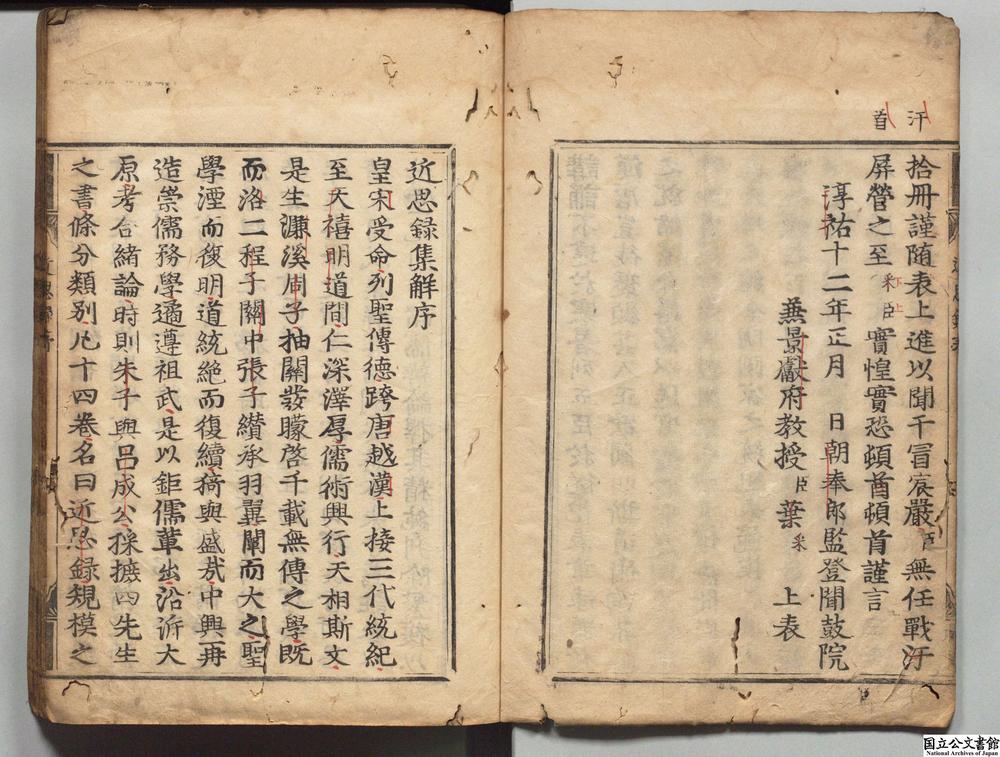 汗
首
拾冊謹随表上進以聞干冒宸嚴臣無任戰汙
屏營之至采臣實惶實恐頓酋頓首謹言
淳祐十二年正月　日朝奉郎監登聞鼓院
兼景獻府教授臣葉采　上表
近思録集解序
皇宋受命列聖傳德跨唐越漢上接三代統紀
至天禧明道間仁深澤厚儒術興行天相斯文
是生濂溪周子抽關發矇啓千載無傳之學既
而洛二程子關中張子纘承羽翼闡而大之聖
學湮而復明道統絶而復續猗與盛哉中興再
造崇儒務學遹遵祖武是以鉅儒軰出沿泝大
原考合緒論時則朱子與呂成公採摭四先生
之書條分類別凡十四卷名曰近思録規模之
国立公文書館
National Archives of Japan